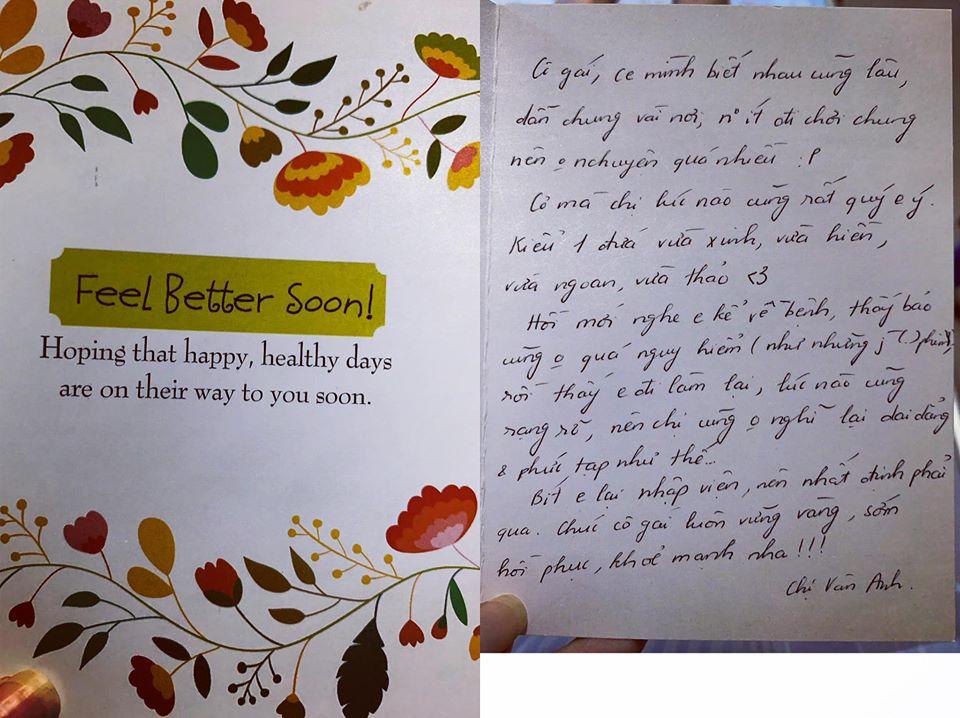 Feel Better Soon!
Hoping that happy, healthy days
are on their way to you soon.
Cô gái, ce mình biết nhau cũng lâu,
dẫn chung vài nơi, n° ít đi chơi chung
nên o nchuyện quá nhiều :P
Cơ mà chị lúc nào cũng rất quý e ý.
Kiểu 1 đứa vừa xinh, vừa hiền,
vừa ngoan, vừa thảo <3
Hồi mới nghe e kể về bệnh, thấy bảo
cũng o quá nguy hiểm (như những
rồi thấy e đi làm lại, lúc nào cũng
rạng rỡ, nên chị cũng o nghĩ lại dai dẳng
& phức tạp như thế...
Bít e lại nhập viện, nên nhất định phải
qua. Chúc cô gái luôn vững vàng, sớm
hồi phục, khoẻ mạnh nha!!!
Chị Vân Anh.